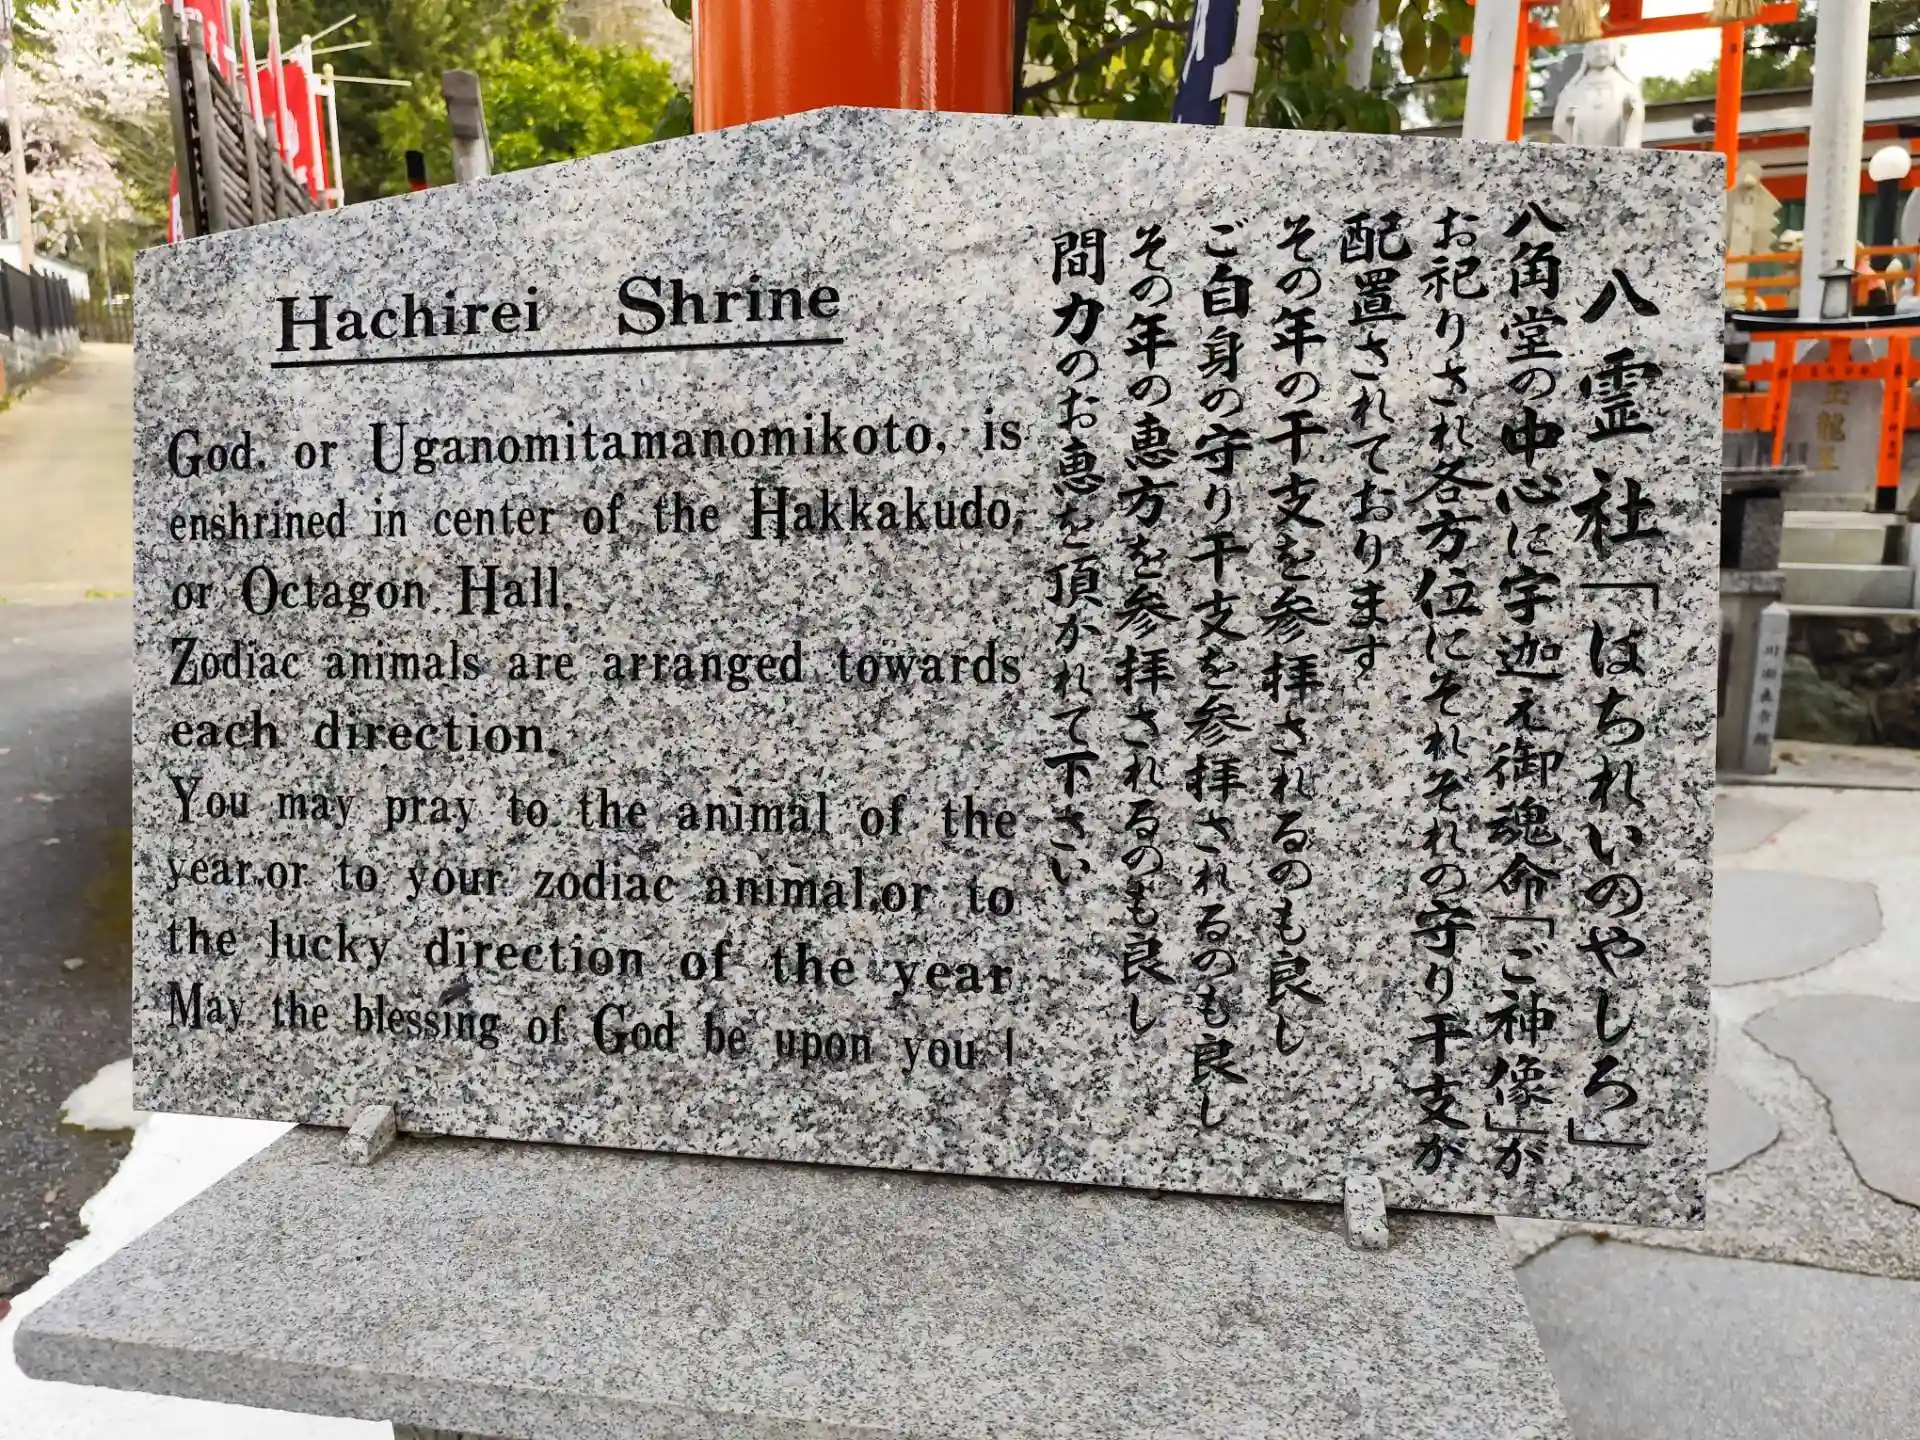 Hachirei Shrine
God, or Uganomitamanomikoto, is
enshrined in center of the Hakkakudo,
or Octagon Hall.
Zodiac animals are arranged towards
each direction.
You may pray to the animal of the
year,or to your zodiac animal,or to
the lucky direction of the year
May the blessing of God be upon you !
八霊社「はちれいのやしろ」
八角堂の中心に宇迦え御魂命「ご神像」が
お祀りされ各方位にそれぞれの守り干支が
配置されております
その年の干支を参拝されるのも良し
ご自身の守り干支を参拝されるのも良し
その年の恵方を参拝されるのも良し
間力のお恵を頂かれて下さい
龍王